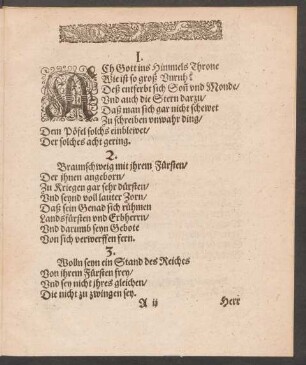 I.
ACh Gott ins Himmels Throne
Wie ist so groß Vnruh?
Deß entferbt sich Soñ vnd Monde/
Vnd auch die Stern darzu/
Daß man sich gar nicht schewet
Zu schreiben vnwahr ding/
Dem Pöfel solchs einblewet/
Der solches acht gering.
2.
Braunschweig mit jhrem Fürsten/
Der ihnen angeborn/
Zu Kriegen gar sehr dürsten/
Vnd seynd voll lauter Zorn/
Daß sein Genad sich rühmen
Landsfürsten vnd Erbherrn/
Vnd darumb seyn Gebote
Von sich verwerffen fern.
3.
Wolln seyn ein Stand des Reiches
Von ihrem Fürsten frey/
Vnd sey nicht jhres gleichen/
Die nicht zu zwingen sey.
A ij Herr